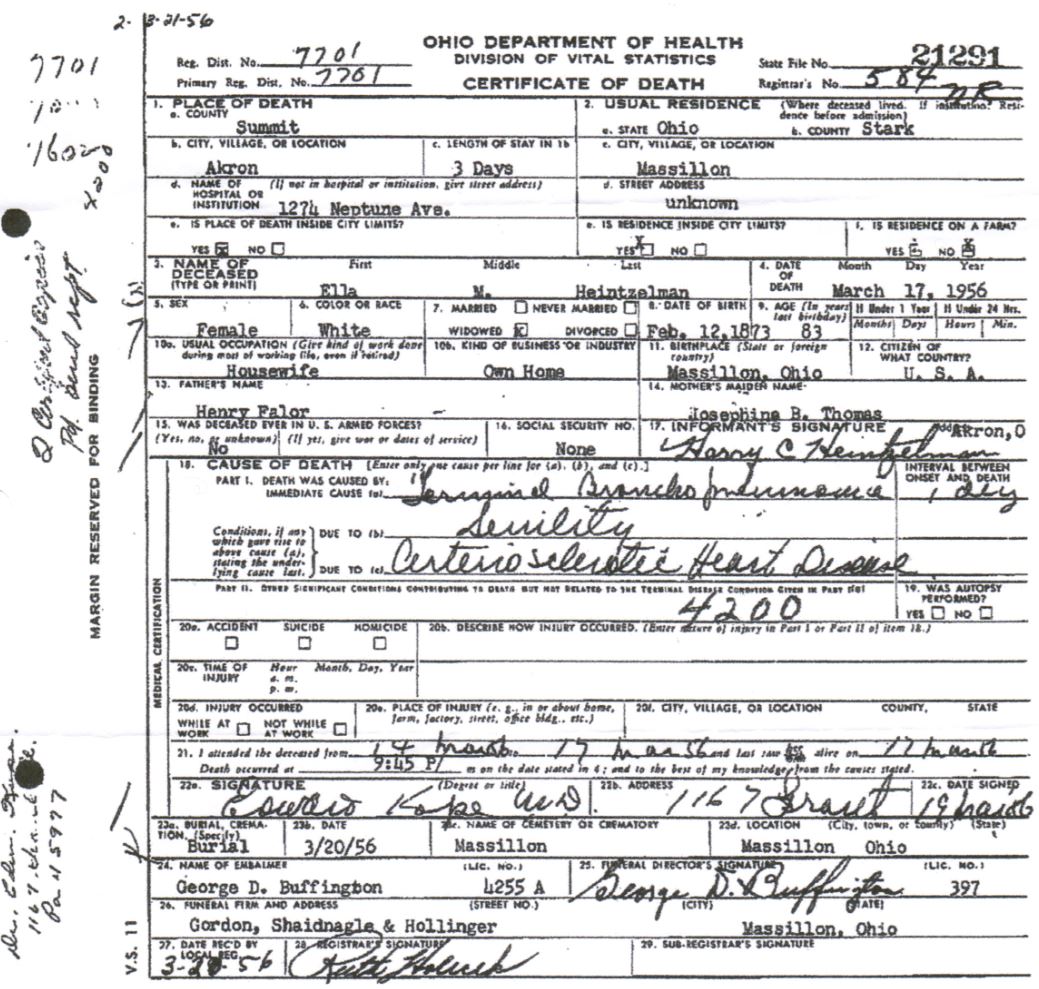 2- 3-21-56
7701
OHIO DEPARTMENT OF HEALTH
DIVISION OF VITAL STATISTICS
CERTIFICATE OF DEATH
Reg. Dist. No. 7701
Primary Reg. Dist. No. 7701
State File No. 21291
Registrar's No. 584
1. PLACE OF DEATH
a. COUNTY
Summit
2. USUAL RESIDENCE (Where deceased lived. If institution: Residence before admission)
a. STATE Ohio b. COUNTY Stark
b. CITY, VILLAGE, OR LOCATION
Akron
c. LENGTH OF STAY IN 1b
3 Days
c. CITY, VILLAGE, OR LOCATION
Massillon
d. NAME OF HOSPITAL OR INSTITUTION (If not in hospital or institution, give street address)
1274 Neptune Ave.
d. STREET ADDRESS
unknown
e. IS PLACE OF DEATH INSIDE CITY LIMITS?
YES X NO
e. IS RESIDENCE INSIDE CITY LIMITS?
YES X NO
f. IS RESIDENCE ON A FARM?
YES NO X
3. NAME OF DECEASED (TYPE OR PRINT)
First Middle Last
Ella M. Heintzelman
4. DATE OF DEATH
Month Day Year
March 17, 1956
5. SEX
Female
6. COLOR OR RACE
White
7. MARRIED NEVER MARRIED
WIDOWED X DIVORCED
8. DATE OF BIRTH
Feb. 12,1873
9. AGE (In years last birthday)
83
If Under 1 Year
Months Days
If Under 24 Hrs.
Hours Min.
10a. USUAL OCCUPATION (Give kind of work done during most of working life, even if retired)
Housewife
10b. KIND OF BUSINESS OR INDUSTRY
Own Home
11. BIRTHPLACE (State or foreign country)
Massillon, Ohio
12. CITIZEN OF WHAT COUNTRY?
U. S. A.
13. FATHER'S NAME
Henry Falor
14. MOTHER'S MAIDEN NAME
Josephine B. Thomas
15. WAS DECEASED EVER IN U. S. ARMED FORCES?
(Yes, no, or unknown) (If yes, give war or dates of service)
No
16. SOCIAL SECURITY NO.
None
17. INFORMANT'S SIGNATURE
Akron, O
Harry C Heintzelman
18. CAUSE OF DEATH [Enter only one cause per line for (a), (b), and (c).]
INTERVAL BETWEEN ONSET AND DEATH
PART I. DEATH WAS CAUSED BY:
IMMEDIATE CAUSE (a) Terminal Bronchopneumonia 1 day
Conditions, if any which gave rise to above cause (a), stating the underlying cause last.
DUE TO (b) Senility
DUE TO (c) Arteriosclerotic Heart Disease
PART II. OTHER SIGNIFICANT CONDITIONS CONTRIBUTING TO DEATH BUT NOT RELATED TO THE TERMINAL DISEASE CONDITION GIVEN IN PART I(a)
4200
19. WAS AUTOPSY PERFORMED?
YES NO
20a. ACCIDENT SUICIDE HOMICIDE
20b. DESCRIBE HOW INJURY OCCURRED. (Enter nature of injury in Part I or Part II of item 18.)
20c. TIME OF INJURY
Hour Month, Day, Year
a. m.
p. m.
20d. INJURY OCCURRED
WHILE AT WORK NOT WHILE AT WORK
20e. PLACE OF INJURY (e. g., in or about home, farm, factory, street, office bldg., etc.)
20f. CITY, VILLAGE, OR LOCATION COUNTY, STATE
21. I attended the deceased from 14 Mar 56 to 17 Mar 56 and last saw alive on 17 Mar 56
Death occurred at 9:45 P m on the date stated in 4; and to the best of my knowledge, from the causes stated.
22a. SIGNATURE (Degree or title)
M.D.
22b. ADDRESS
1167 Grant
22c. DATE SIGNED
19 Mar 56
23a. BURIAL, CREMATION, (Specify)
Burial
23b. DATE
3/20/56
23c. NAME OF CEMETERY OR CREMATORY
Massillon
23d. LOCATION (City, town, or county) (State)
Massillon Ohio
24. NAME OF EMBALMER (LIC. NO.)
George D. Buffington 4255 A
25. FUNERAL DIRECTOR'S SIGNATURE (LIC. NO.)
George D. Buffington 397
26. FUNERAL FIRM AND ADDRESS (STREET NO.) (CITY) (STATE)
Gordon, Shaidnagle & Hollinger Massillon, Ohio
27. DATE REC'D BY LOCAL REG.
3-20-56
28. REGISTRAR'S SIGNATURE
29. SUB-REGISTRAR'S SIGNATURE
MARGIN RESERVED FOR BINDING
MEDICAL CERTIFICATION
V.S. 11